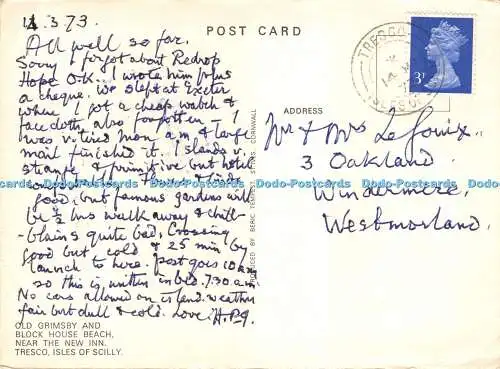 14.3.73.
POST CARD
All well so far.
Sorry I forgot about Redrop
Hope O.K... I wrote him plus
a cheque. We slept at Exeter
where I got a cheap watch &
face cloths also forgotten – I
was v. tired mon a.m & large
mail finished it. Island v.
strange & primitive but hotel
food, but famous gardens will
be ½ hrs walk away & chil-
blains quite bad. Crossing
good but cold & 25 min by
launch to here. post goes 10 am
so this is written in bed 7.30 a.m.
No cars allowed on island. weather
fair but dull & cold. Love.
ADDRESS
Mr & Mrs
3 Oakland
Windermere
Westmorland.
TRESCO
3P
PRODUCED BY BERIC TEMPEST, ST. IVES, CORNWALL
Dodo-Postcards Dodo-Postcards Dodo-Postcards Dodo-Postcards
OLD GRIMSBY AND
BLOCK HOUSE BEACH,
NEAR THE NEW INN.
TRESCO, ISLES OF SCILLY.